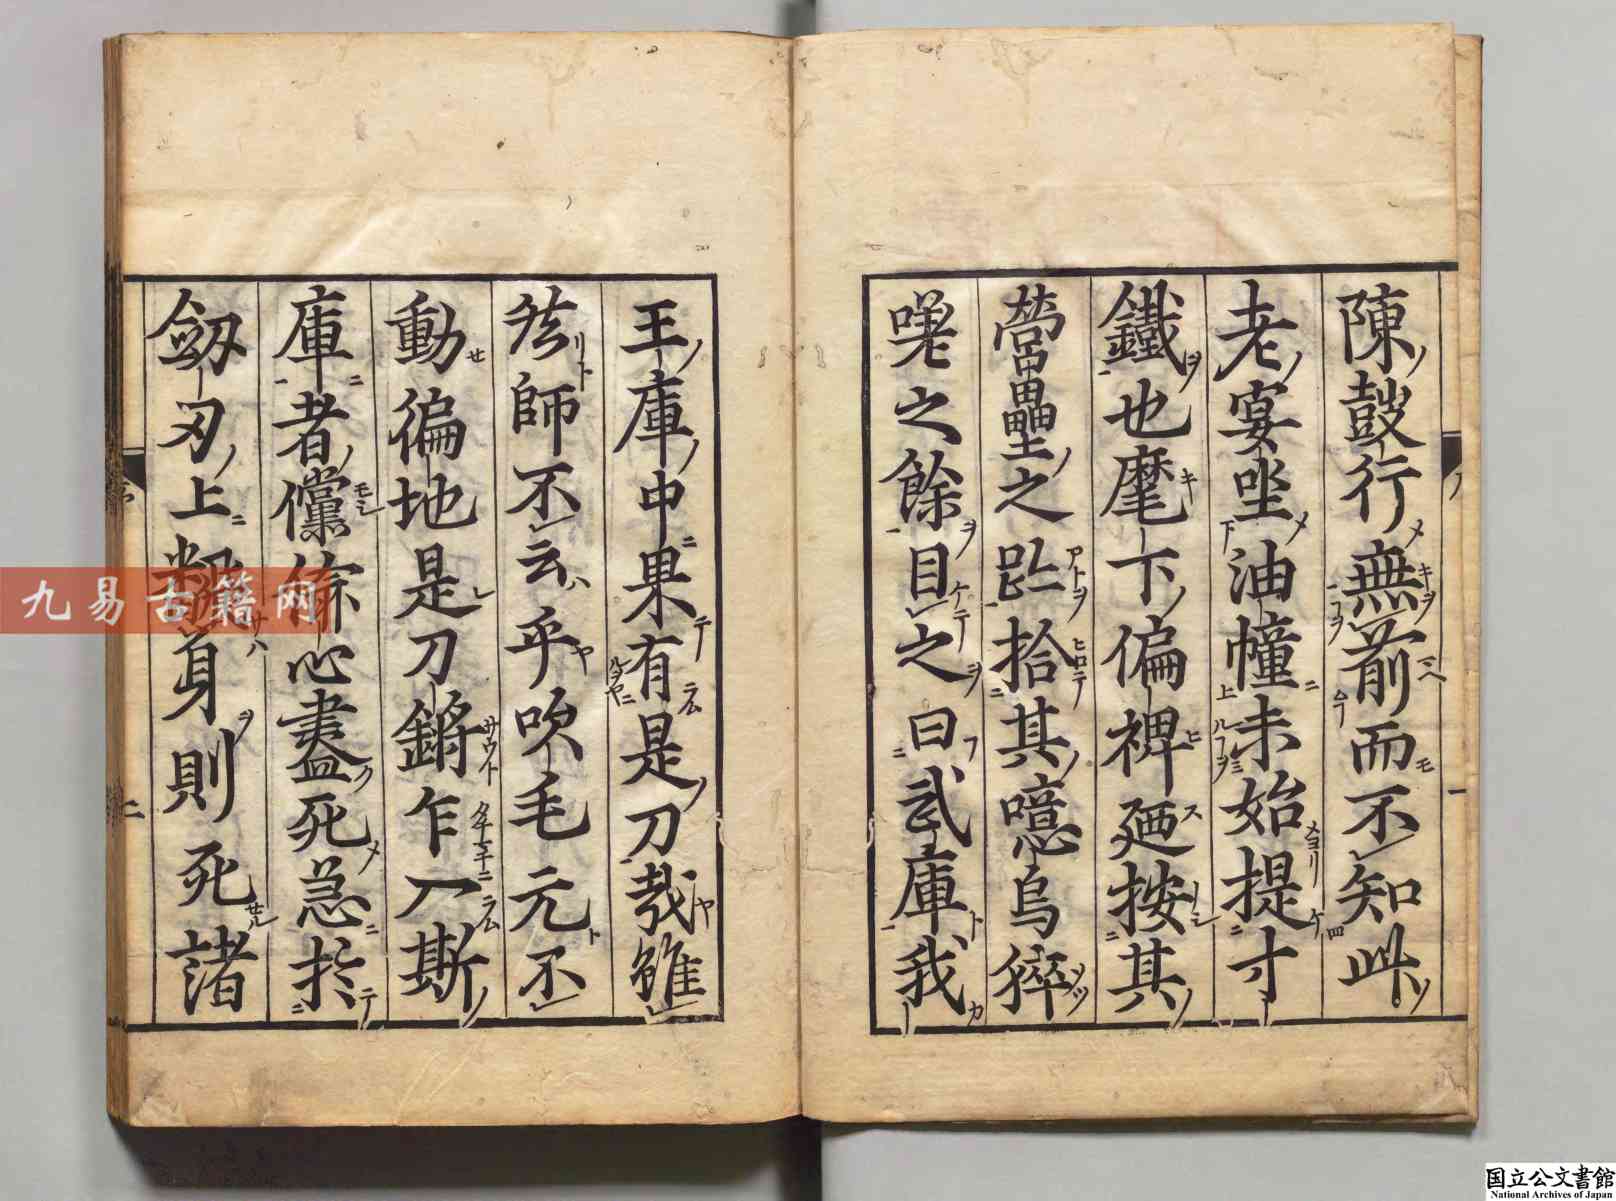 陳鼓行無前而不知此
老宴坐油幢未始提寸
鐵也麾下偏裨廼按其
營壘之趾拾其噫烏猝
嘆之餘目之曰武庫我
王庫中果有是刀哉雖
然師不云乎吹毛元不
動徧地是刀鎗乍入斯
庫者儻偷心盡死急於
劒刃上翻身則死諸
九易古籍网
国立公文書館
National Archives of Japan